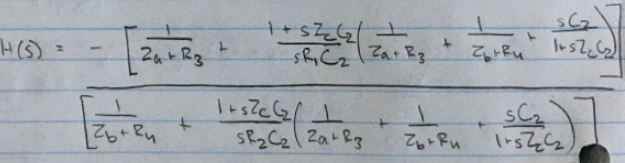 H(s) = - [ 1/(Za + R3) + (1 + sZcC2)/(sR1C2) ( 1/(Za + R3) + 1/(Zb + R4) + sC2/(1 + sZcC2) ) ]
[ 1/(Zb + R4) + (1 + sZcC2)/(sR2C2) ( 1/(Za + R3) + 1/(Zb + R4) + sC2/(1 + sZcC2) ) ]